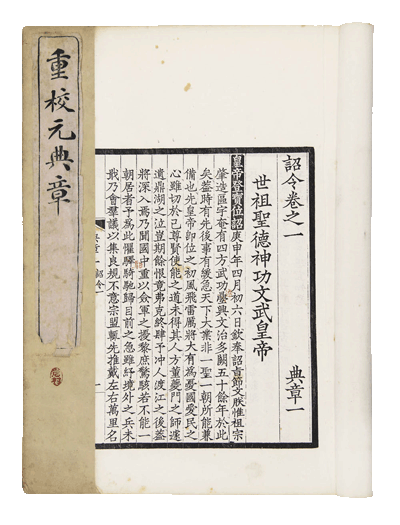 重校元典章
詔令卷之一
典章一
世祖聖德神功文武皇帝
皇帝登寶位詔庚申年四月初六日欽奉詔節文朕惟祖宗
肇造區宇奄有四方武功興文治多闕五十餘年於此
矣蓋時有先後事有緩急天下大業非一聖一朝所能兼
備也先皇帝即位之初風飛雷厲將大有為憂國愛民之
心雖切於己尊賢使能之道未得其人方董夔門之師遽
遺鼎湖之泣豈期餘恨竟弗克終肆予冲人渡江之後蓋
將深入焉乃聞國中重以僉軍之擾黎庶驚駭若不能一
朝居者予為此懼驛騎馳歸目前之急雖紓境外之兵未
戢乃會羣議以集良規不意宗盟輒先推戴左右萬里名